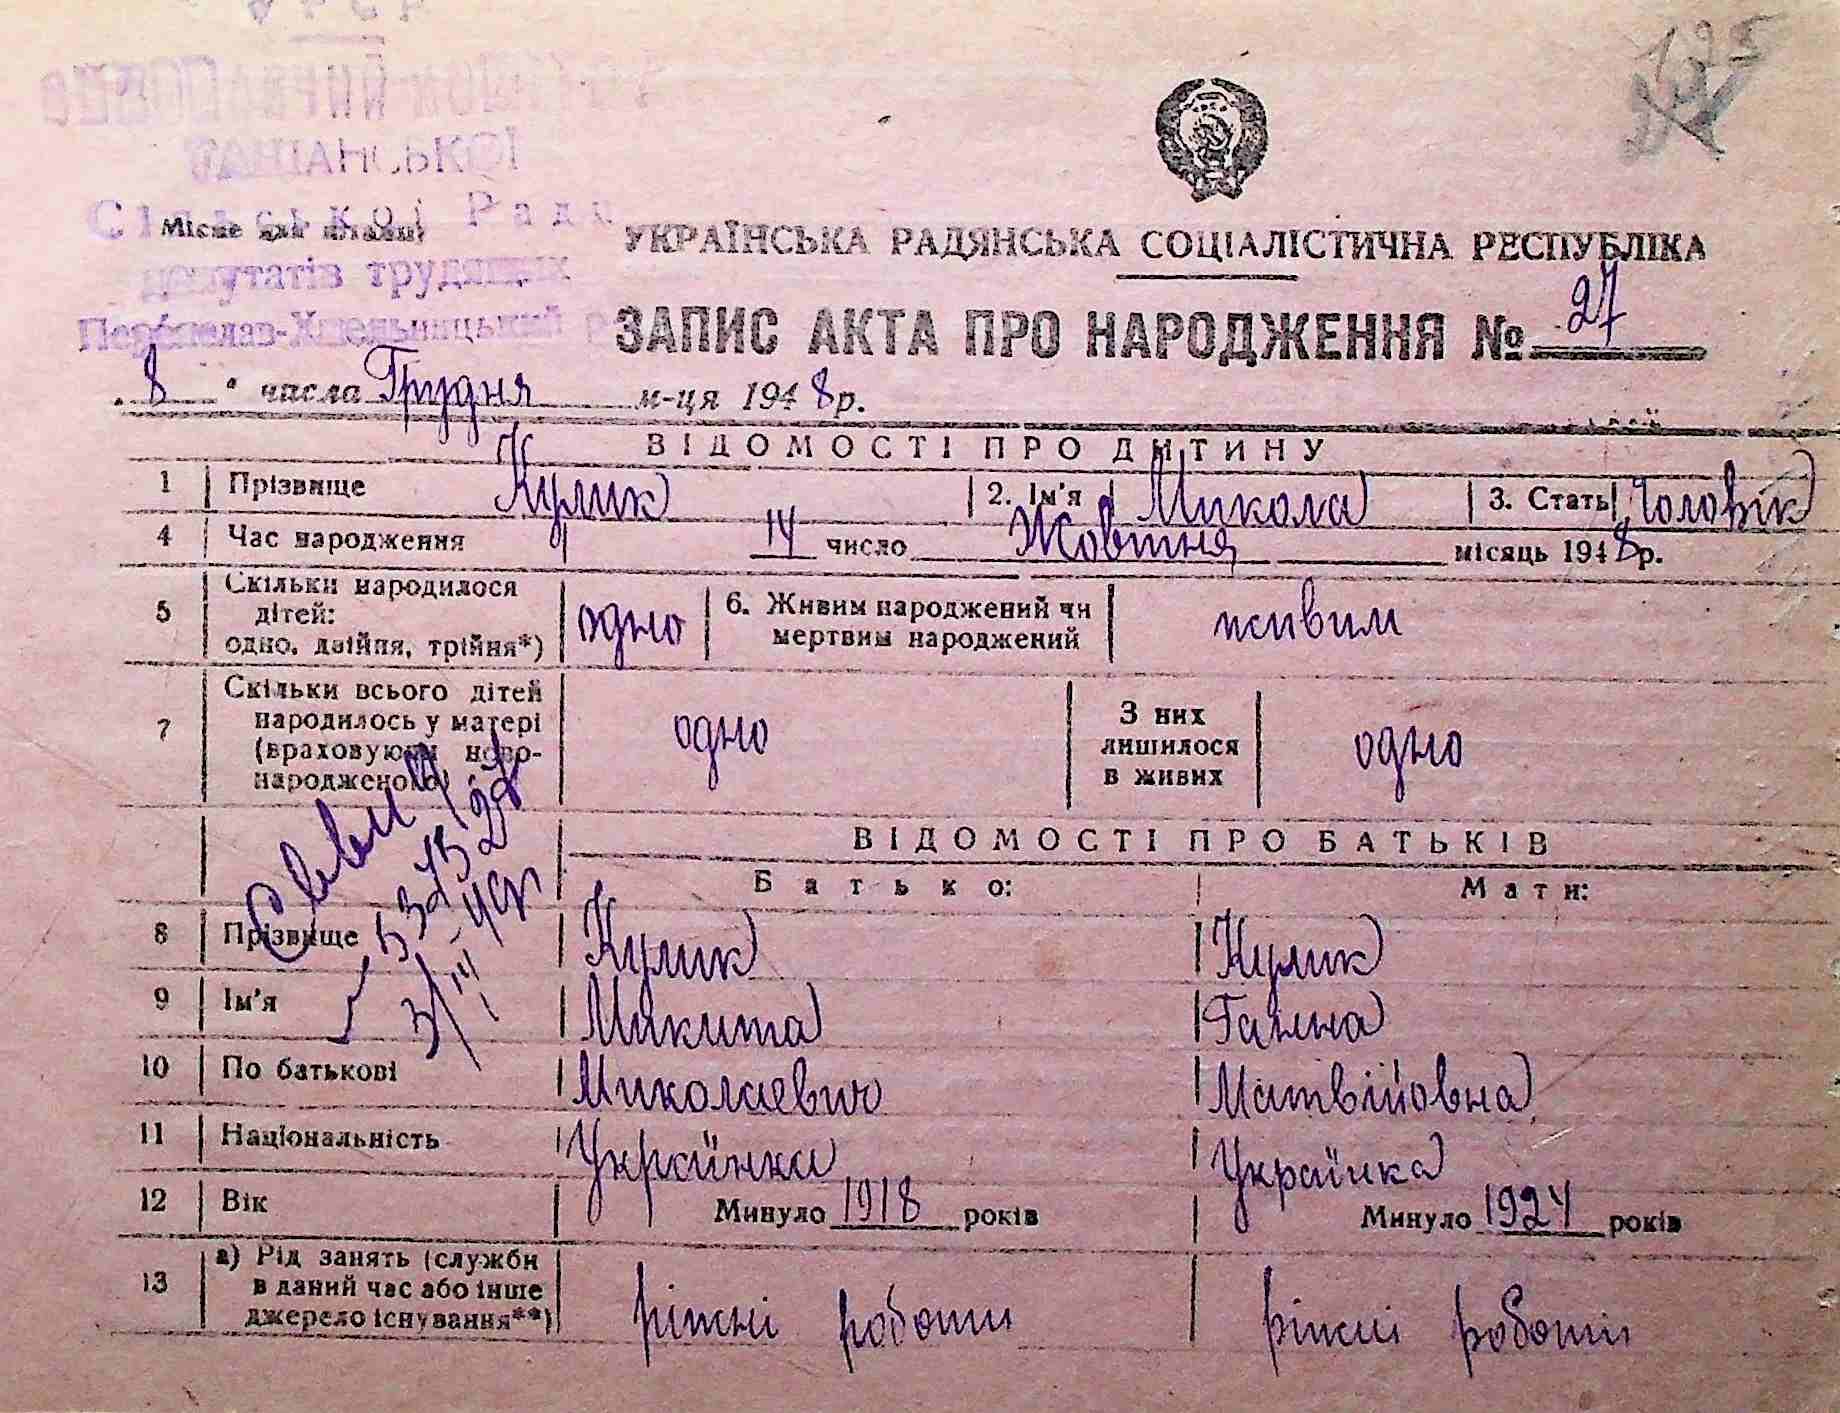 УРСР
ТАШАНСЬКОЇ
Сільської Ради
депутатів трудящих
Переяслав-Хмельницький р
Місце для штампу
УКРАЇНСЬКА РАДЯНСЬКА СОЦІАЛІСТИЧНА РЕСПУБЛІКА
ЗАПИС АКТА ПРО НАРОДЖЕННЯ № 27
„8" числа Грудня м-ця 1948 р.
ВІДОМОСТІ ПРО ДИТИНУ
1 Прізвище Кулик 2. Ім'я Микола 3. Стать Чоловік
4 Час народження 14 число Жовтня місяць 1948 р.
5 Скільки народилося дітей: одно, двійня, трійня*) одно 6. Живим народжений чи мертвим народжений живим
7 Скільки всього дітей народилось у матері (враховуючи новонародженого) одно З них лишилося в живих одно
ВІДОМОСТІ ПРО БАТЬКІВ
Батько: Мати:
8 Прізвище Кулик Кулик
9 Ім'я Микита Ганна
10 По батькові Миколаевич Матвійовна
11 Національність Українка Українка
12 Вік Минуло 1918 років Минуло 1924 років
13 а) Рід занять (служби в даний час або інше джерело існування**) ріжні роботи ріжні роботи